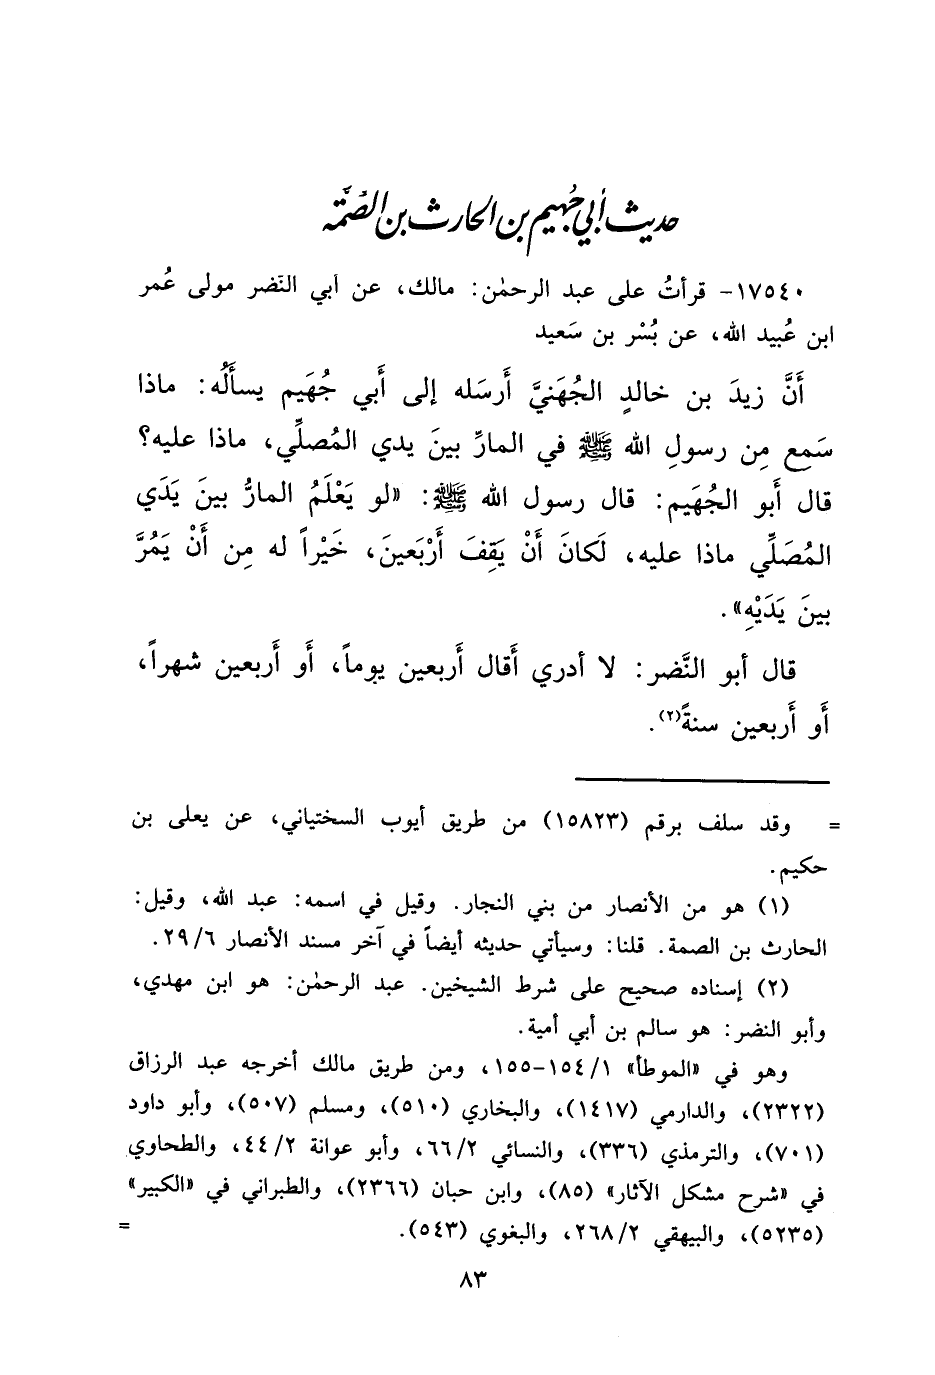 حديث أبي جُهيم بن الحارث بن الصُمَّة
١٧٥٤٠- قرأتُ على عبد الرحمٰن: مالك، عن أبي النَضر مولى عُمر
ابن عُبيد الله، عن بُسْر بن سَعيد
أَنَّ زيدَ بن خالدٍ الجُهَنيَّ أَرسَله إلى أَبي جُهَيم يسأَلُه: ماذا
سَمِع مِن رسولِ الله ﷺ في المارِّ بينَ يدي المُصلِّي، ماذا عليه؟
قال أَبو الجُهَيم: قال رسول الله ﷺ: «لو يَعْلَمُ المارُّ بينَ يَدَي
المُصَلِّي ماذا عليه، لَكانَ أَنْ يَقِفَ أَرْبَعينَ، خَيْراً له مِن أَنْ يَمُرَّ
بينَ يَدَيْهِ».
قال أبو النَّضر: لا أدري أَقال أَربعين يوماً، أَو أَربعين شهراً،
أَو أَربعين سنةً(٢).
= وقد سلف برقم (١٥٨٢٣) من طريق أيوب السختياني، عن يعلى بن
حكيم.
(١) هو من الأنصار من بني النجار. وقيل في اسمه: عبد الله، وقيل:
الحارث بن الصمة. قلنا: وسيأتي حديثه أيضاً في آخر مسند الأنصار ٢٩/٦.
(٢) إسناده صحيح على شرط الشيخين. عبد الرحمٰن: هو ابن مهدي،
وأبو النضر: هو سالم بن أبي أمية.
وهو في «الموطأ» ١٥٤/١-١٥٥، ومن طريق مالك أخرجه عبد الرزاق
(٢٣٢٢)، والدارمي (١٤١٧)، والبخاري (٥١٠)، ومسلم (٥٠٧)، وأبو داود
(٧٠١)، والترمذي (٣٣٦)، والنسائي ٦٦/٢، وأبو عوانة ٤٤/٢، والطحاوي
في «شرح مشكل الآثار» (٨٥)، وابن حبان (٢٣٦٦)، والطبراني في «الكبير»
(٥٢٣٥)، والبيهقي ٢٦٨/٢، والبغوي (٥٤٣). =
٨٣